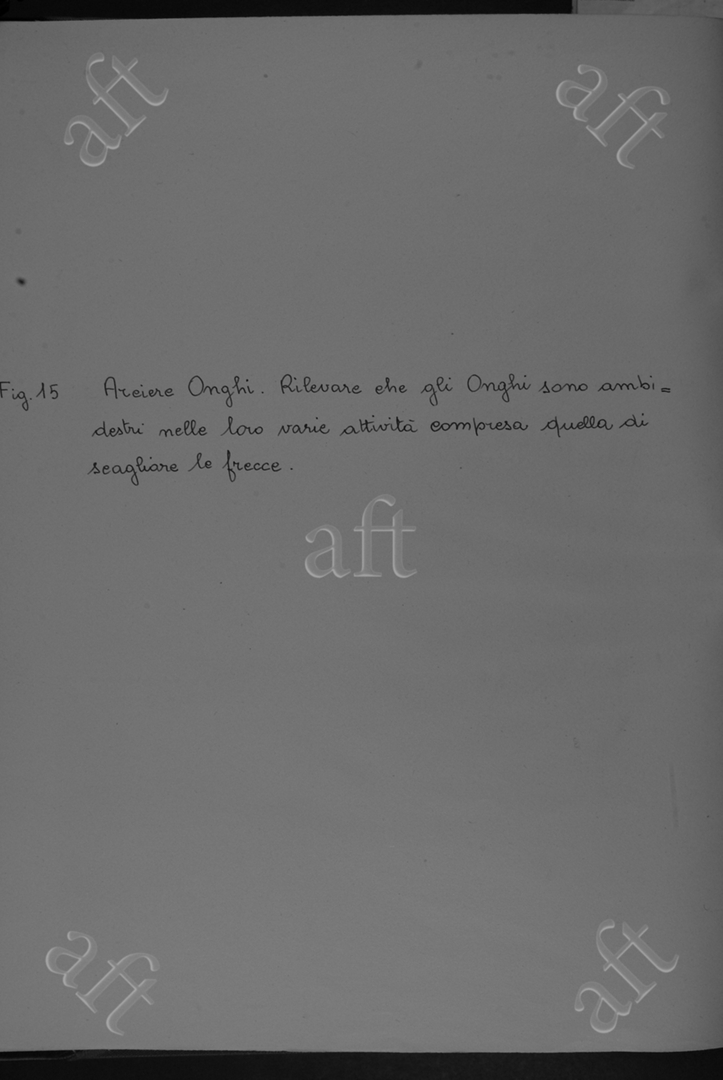 aft
aft
Fig. 15 Arciere Onghi. Rilevare che gli Onghi sono ambi=
destri nelle loro varie attività compresa quella di
scagliare le frecce.
aft
aft
aft